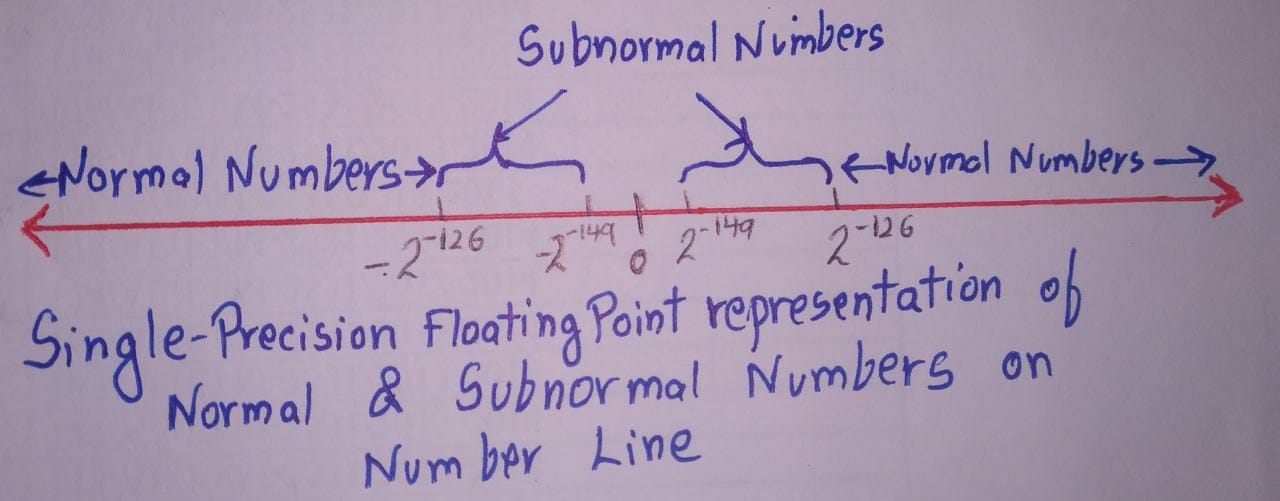 Subnormal Numbers
←Normal Numbers→ ←Normal Numbers→
-2⁻¹²⁶ -2⁻¹⁴⁹ 0 2⁻¹⁴⁹ 2⁻¹²⁶
Single-Precision Floating Point representation of
Normal & Subnormal Numbers on
Number Line